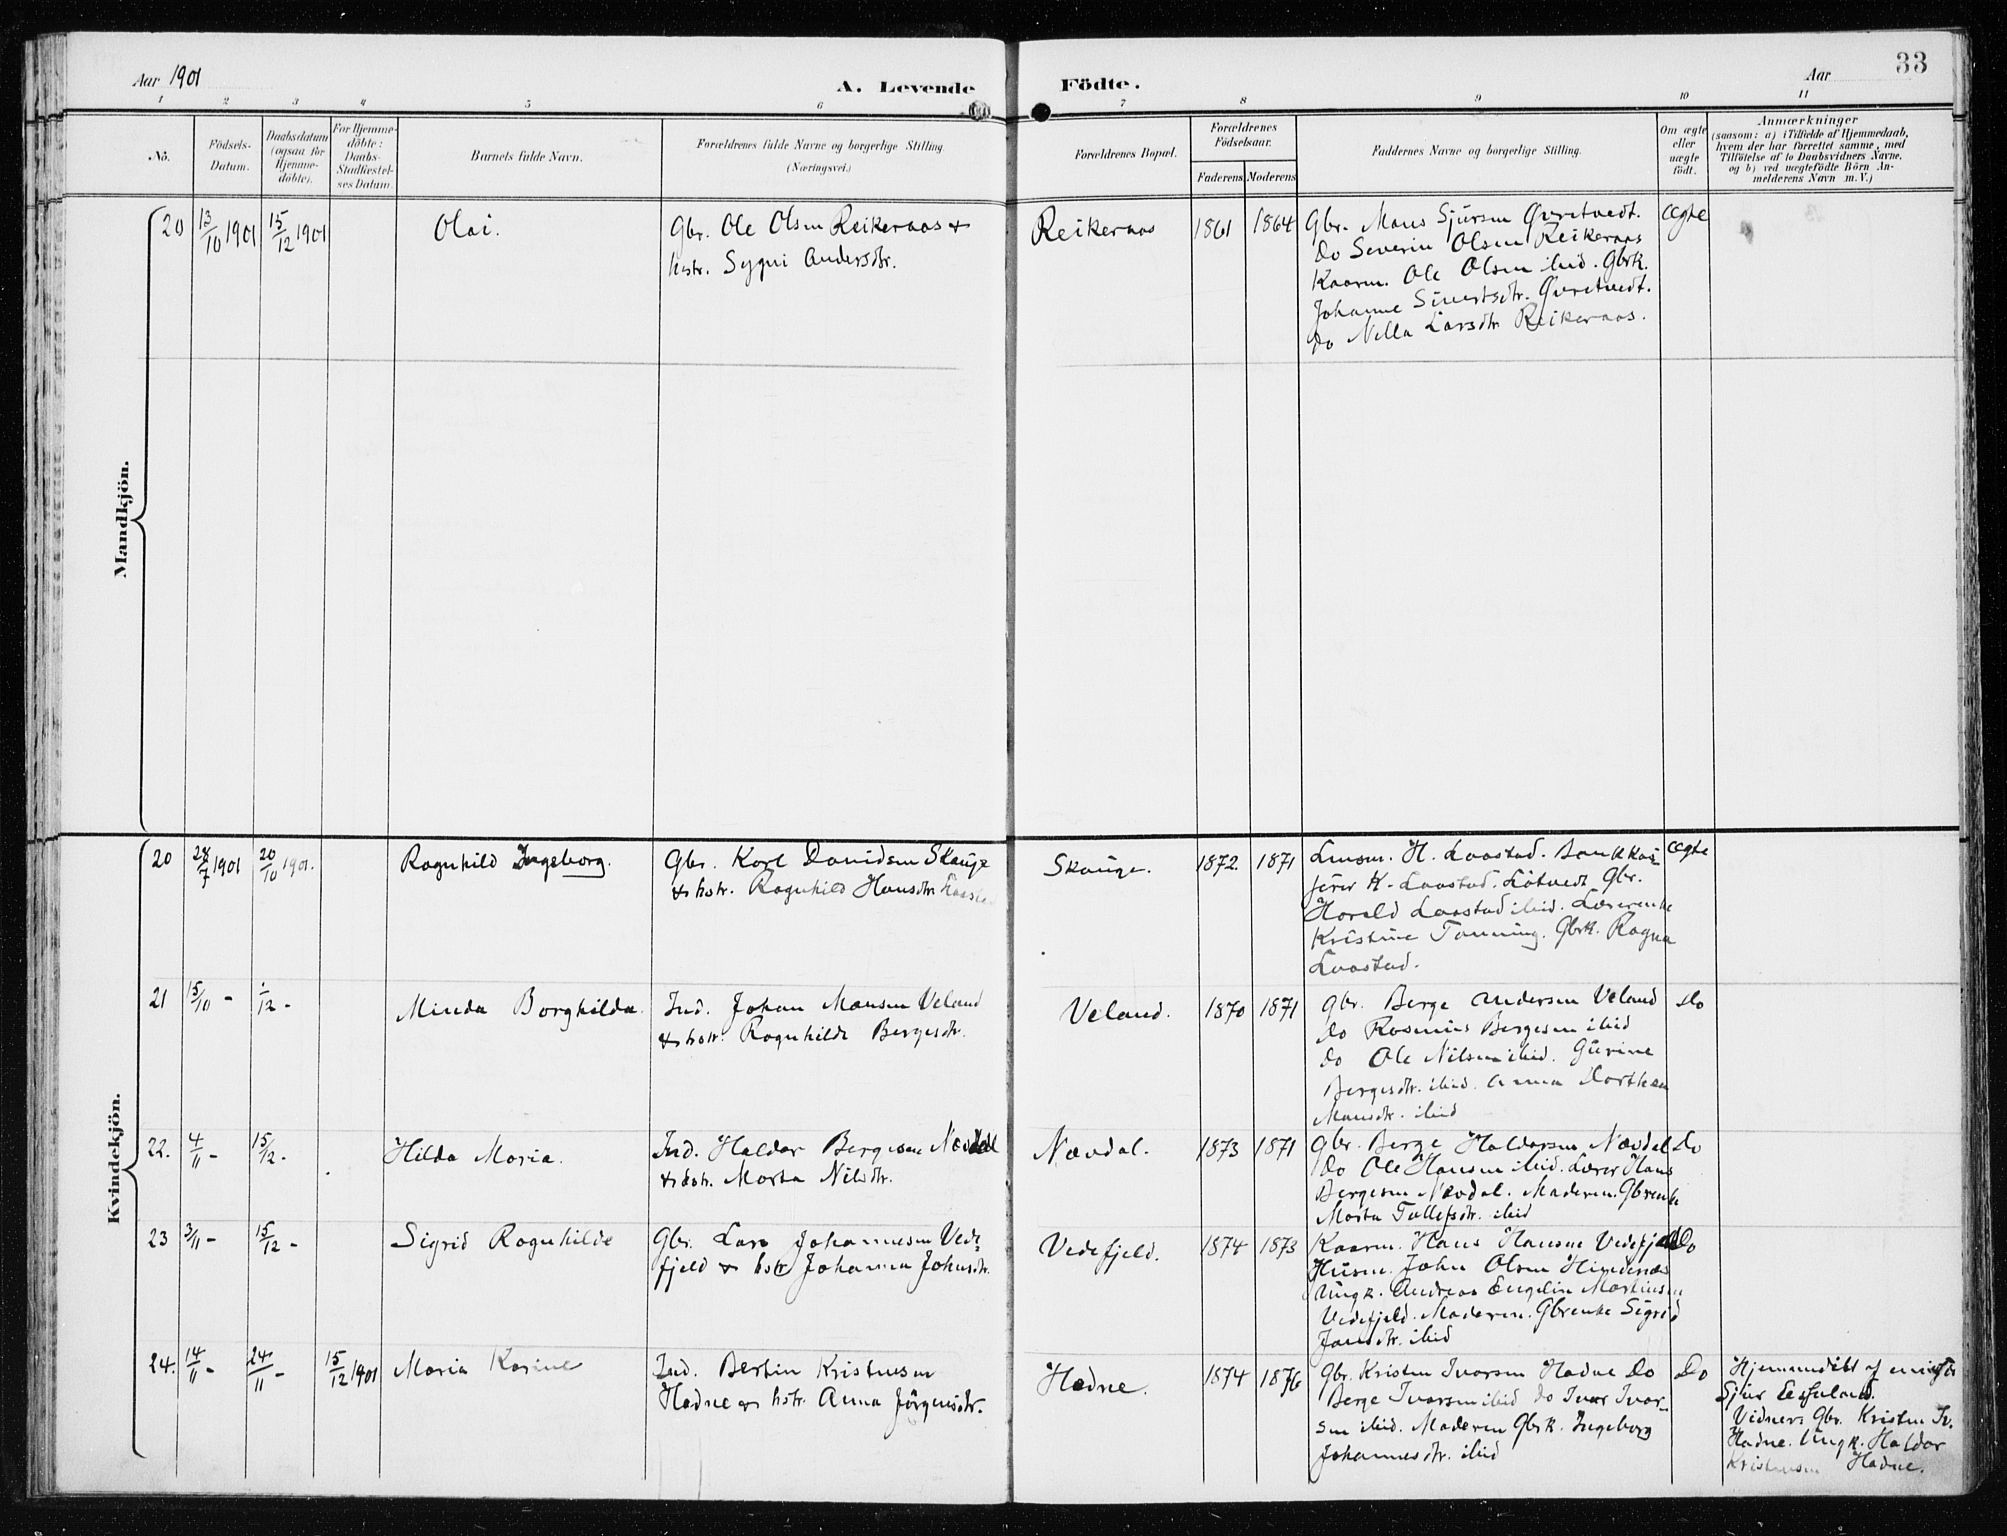 Aar 1901
A. Levende
Födte.
Aar
33
1 2 3 4 5 6 7 8 9 10 11
No.
Födsels-
Datum.
Daabsdatum
(ogsaa for
Hjemme-
döbte).
For Hjemme-
döbte:
Daabs-
Stadfæstel-
ses Datum.
Barnets fulde Navn.
Forældrenes fulde Navne og borgerlige Stilling
(Næringsvei.)
Forældrenes Bopæl.
Forældrenes
Födselsaar.
Faderens Moderens
Faddernes Navne og borgerlige Stilling.
Om ægte
eller
uægte
födt.
Anmærkninger
(saasom: a) i Tilfælde af Hjemmedaab,
hvem der har forrettet samme, med
Tilföielse af to Daabsvidners Navne,
og b) ved uægtefödte Börn An-
melderens Navn m. V.)
Mandkjön.
20 13/10 1901 15/12 1901
Olai.
Gbr. Ole Olsen Reikeraas &
hstr. Sygni Andersdtr.
Reikeraas
1861 1864
Gbr. Mons Sjursen Øvretvedt.
Do Severin Olsen Reikeraas
Kaarm. Ole Olsen ibid. Gbrk.
Johanne Sivertsdtr. Øvretvedt.
Do Nilla Larsdtr Reikeraas.
ægte
Kvindekjön.
20 28/7 1901 20/10 1901.
Ragnhild Ingeborg.
Gbr. Karl Davidsen Skauge
& hstr. Ragnhild Hansdtr. Laastad
Skauge.
1872. 1871
Lensm. H. Laastad. Bankkas-
serer K. Laastad. Løtvedt Gbr.
Harald Laastad ibid. Lærerenke
Kristine Tonning. Gbrk. Ragna
Laastad.
ægte
21 15/10 - 1/12 -
Minda Borghilda.
Ind. Johan Monsen Veland
& hstr. Ragnhilde Bergesdtr.
Veland.
1870 1871
Gbr. Berge Andersen Veland
Do Rasmus Bergesen ibid
Do Ole Nilsen ibid. Gurine
Bergesdtr. ibid. Anna Dorthea
Monsdtr. ibid
Do
22. 4/11 - 15/12 -
Hilda Maria.
Ind. Haldor Bergesen Nævdal
& hstr. Marta Nilsdtr.
Nævdal.
1873 1871
Gbr. Berge Haldorsen Nævdal
Do Ole Hansen ibid. Lærer Hans
Bergesen Nævdal. Moderen. Gbrenke
Marta Tollefsdtr. ibid
Do
23 3/11 - 15/12 -
Sigrid Ragnhilde
Gbr. Lars Johannesen Vede-
fjeld & hstr Johanna Johnsdtr.
Vedefjeld.
1874 1873
Kaarm. Hans Hansen Vedefjeld
Husm. John Olsen Hindenes
Ungk. Andreas Engelin Martinsen
Vedefjeld. Moderen. Gbrenke Sigrid
Jansdtr. ibid
Do
24. 14/11 - 24/11 - 15/12 1901
Maria Karine
Ind. Bertin Kristensen
Hodne & hstr. Anna Jørgensdtr.
Hodne.
1874 1876
Gbr. Kristen Ivarsen Hodne Do
Berge Ivarsen ibid Do Ivar Ivar-
sen ibid. Moderen Gbrk. Ingeborg
Johannesdtr. ibid
Do
Hjemmedøbt af
Sjur
Vidner: Gbr. Kristen Iv.
Hodne. Ungk. Haldor
Kristensen Hodne.